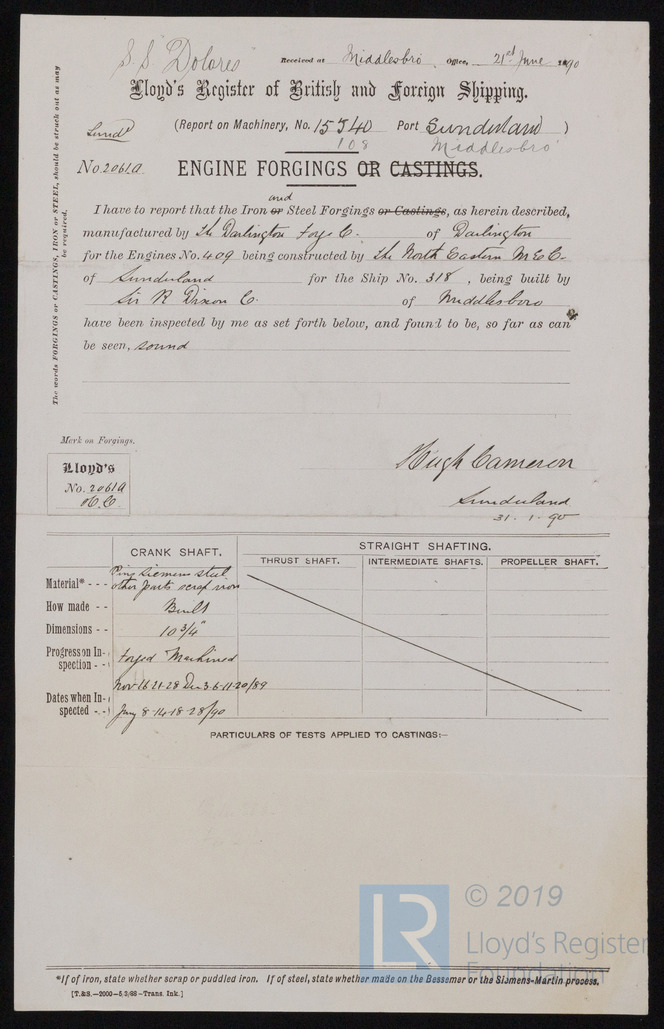 S.S. Dolores
Received at Middlesbro Office, 21st June 1890
Lloyd's Register of British and Foreign Shipping.
Sund'd (Report on Machinery, No. 15540 Port Sunderland)
108 Middlesbro'
No. 2061A. ENGINE FORGINGS OR CASTINGS.
and
I have to report that the Iron or Steel Forgings or Castings, as herein described,
manufactured by The Darlington Forge C. of Darlington
for the Engines No. 409 being constructed by The North Eastern M E C.
of Sunderland for the Ship No. 318, being built by
Sir R Dixon C. of Middlesboro
have been inspected by me as set forth below, and found to be, so far as can
be seen, sound
The words FORGINGS or CASTINGS, IRON or STEEL, should be struck out as may
be required.
Mark on Forgings.
Lloyd's
No. 2061A
H.C
Hugh Cameron
Sunderland
31.1.90
CRANK SHAFT. STRAIGHT SHAFTING.
THRUST SHAFT. INTERMEDIATE SHAFTS. PROPELLER SHAFT.
Material* - - - Pins Siemens steel
other parts scrap iron
How made - - Built
Dimensions - - 10 3/4"
Progress on In-
spection - - Forged Machined
Nov 16 21-28 Dec 3-6-11-20/89
Dates when In-
spected - - Jany 8-14-18-28/90
PARTICULARS OF TESTS APPLIED TO CASTINGS:—
© 2019
LR
Lloyd's Register
Foundation
*If of iron, state whether scrap or puddled iron. If of steel, state whether made on the Bessemer or the Siemens-Martin process.
[T.&S.—2000—5/3/88—Trans. Ink.]